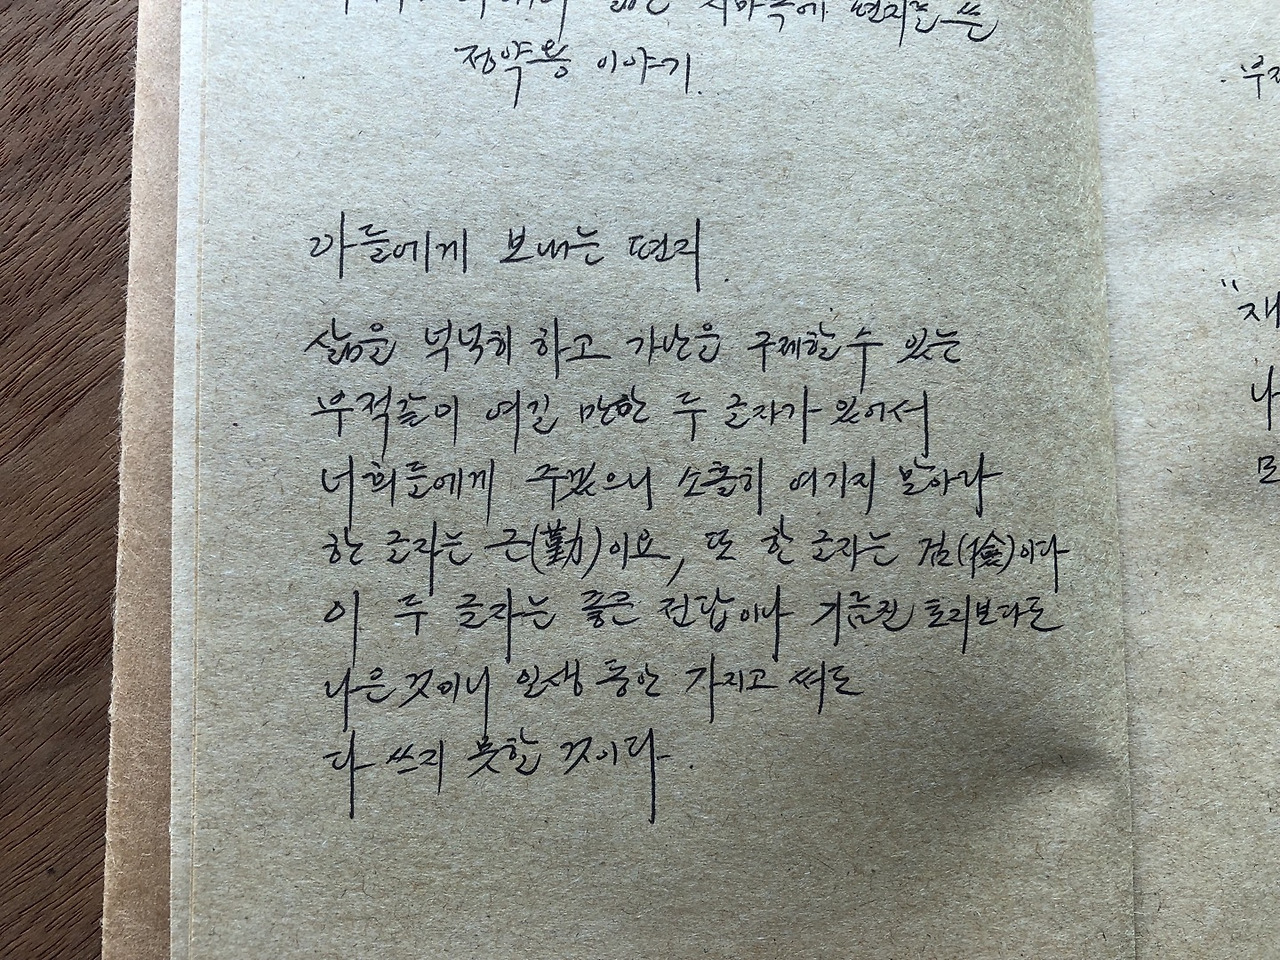 편지를 쓴
정약용 이야기.
아들에게 보내는 편지.
삶을 넉넉히 하고 가난을 구제할 수 있는
부적같이 여길 만한 두 글자가 있어서
너희들에게 주겠으니 소홀히 여기지 말아라
한 글자는 근(勤)이요, 또 한 글자는 검(儉)이다
이 두 글자는 좋은 전답이나 기름진 토지보다도
나은 것이니 일생 동안 가지고 써도
다 쓰지 못할 것이다.
"재
나
모